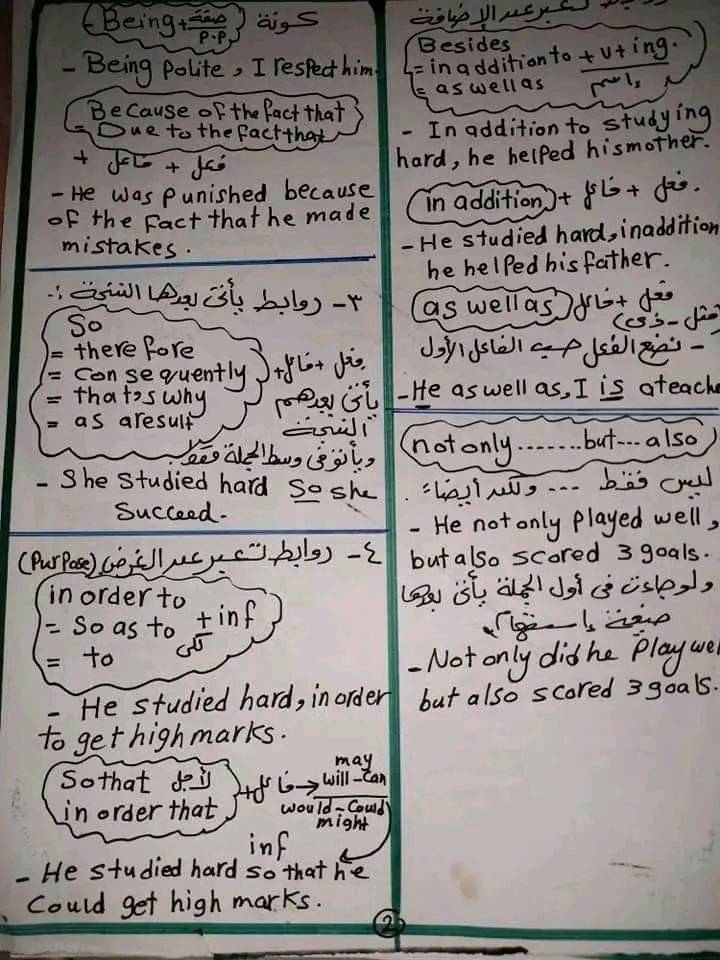 كونة (Being + صفة
p.p)
- Being polite, I respect him.
Because of the fact that
= Due to the fact that
+ فاعل + فعل
- He was punished because
of the fact that he made
mistakes.
٣- روابط يأتى بعدها النتيجة :-
So
= there fore
= con sequently
= that's why
= as aresult
+ فاعل + فعل
يأتى بعدهم
النتيجة
ويأتو فى وسط الجملة فقط
- She studied hard So she
Succeed.
٤- روابط تعبر عن الغرض (Purpose)
in order to
= So as to + inf
= to
لكى
- He studied hard, in order
to get high marks.
So that لأجل
in order that
+ فاعل →
may
will - Can
would - Could
might
inf
- He studied hard so that he
Could get high marks.
روابط تعبر عن الإضافة
Besides
= in addition to + v + ing.
= as well as إسم
- In addition to studying
hard, he helped his mother.
In addition, + فاعل + فعل.
- He studied hard, in addition
he helped his father.
as well as فاعل + فعل
- نضع الفعل حسب الفاعل الأول
- He as well as, I is a teache
not only ....... but --- also
ليس فقط --- ولكن أيضاً.
- He not only played well,
but also scored 3 goals.
ولو جاءت فى أول الجملة يأتى بعدها
صيغة إستفهام.
- Not only did he Play wel
but also scored 3 goals.
2